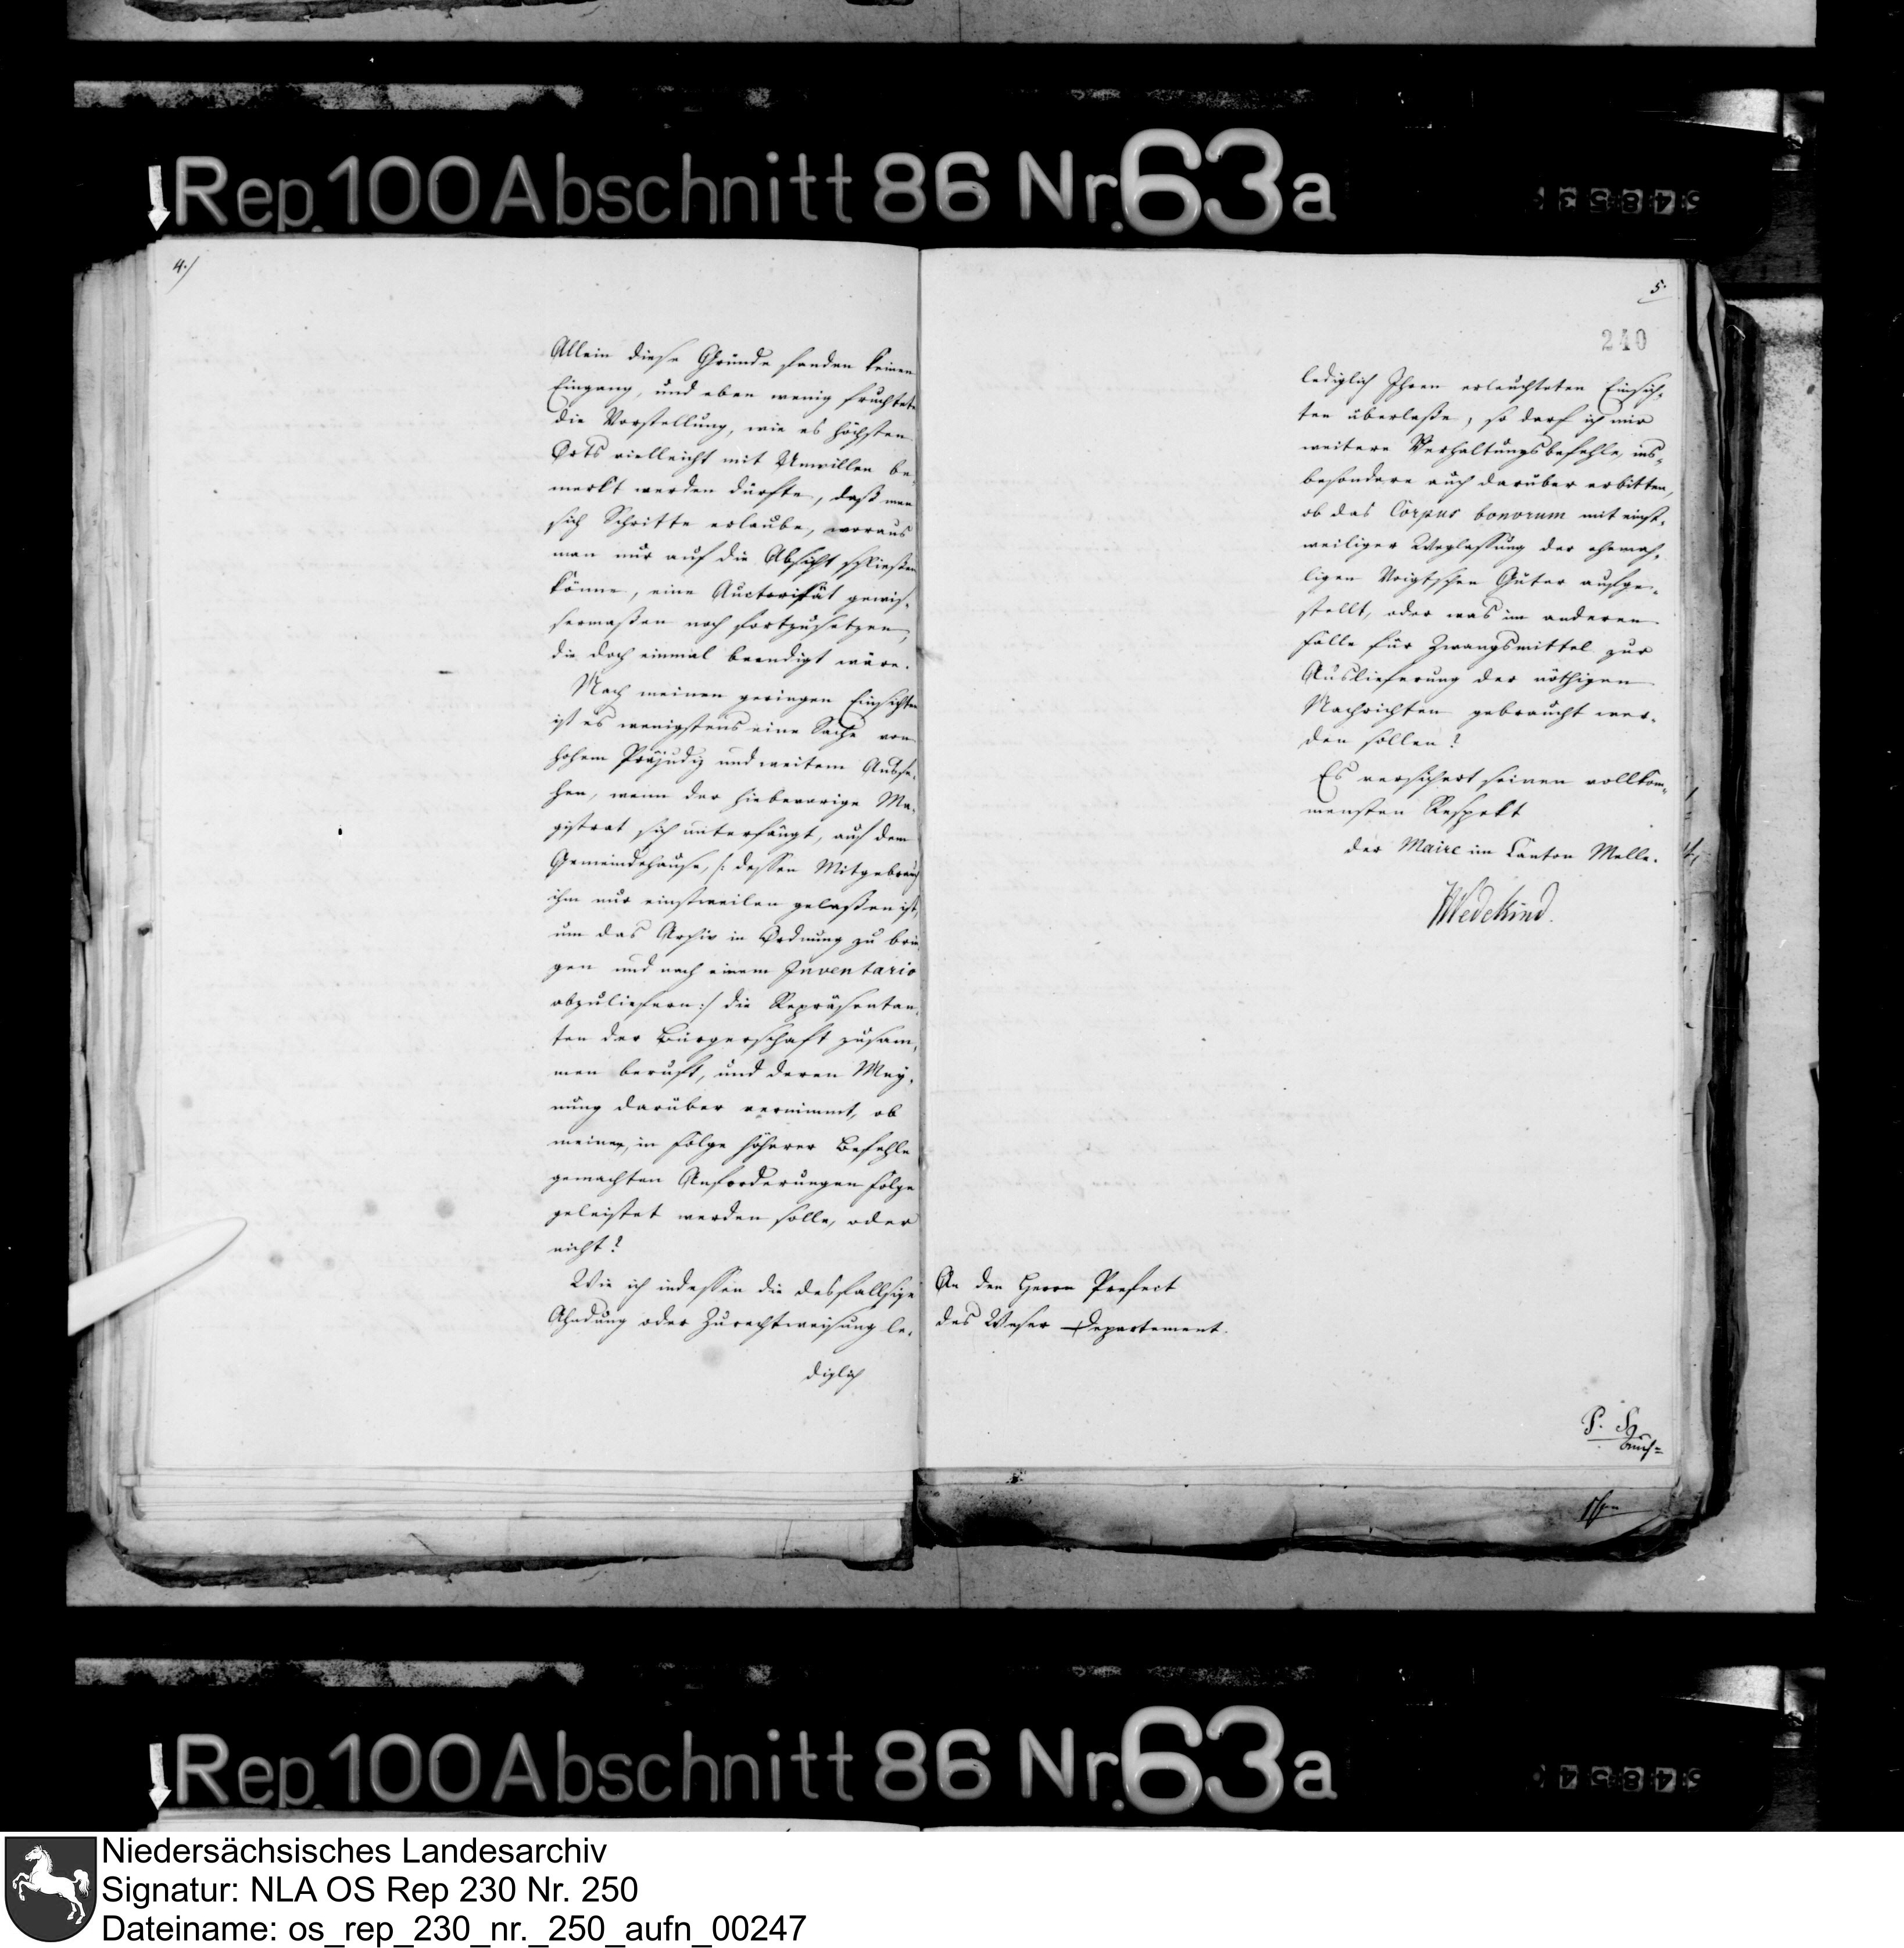 Rep. 100 Abschnitt 86 Nr. 63a
4.)
Allein diese Gründe fanden keinen
Eingang, und eben wenig fruchtete
die Vorstellung, wie es höchsten
Orts vielleicht mit Unwillen be-
merkt werden dürfte, daß man
sich Schritte erlaube, woraus
man nur auf die Absicht schließen
könne, eine Auctorität gewis-
sermaßen noch fortzusetzen,
die doch einmal beendigt wäre.
Nach meinen geringen Einsichten
ist es wenigstens eine Sache von
hohem Präjudiz und weitem Ausse-
hen, wenn der hiebevorige Ma-
gistrat sich unterfängt, auf dem
Gemeindehause, /: dessen Mitgebrauch
ihm nur einstweilen gelaßen ist,
um das Archiv in Ordnung zu brin-
gen und nach einem Inventario
abzuliefern :/ die Repräsentan-
ten der Bürgerschaft zusam-
men beruft, und deren Mey-
nung darüber vernimmt, ob
meinen, in Folge höherer Befehle
gemachten Anforderungen Folge
geleistet werden solle, oder
nicht?
Wie ich indessen die desfallsige
Ahndung oder Zurechtweisung le-
diglich
5.
240
lediglich Ihren erleuchteten Einsich-
ten überlaße, so darf ich mir
weitere Verhaltungsbefehle, ins-
besondere auch darüber erbitten,
ob das Corpus bonorum mit einst-
weiliger Weglassung der ehema-
ligen Voigtschen Güter aufge-
stellt, oder was im anderen
Falle für Zwangsmittel zur
Auslieferung der nöthigen
Nachrichten gebraucht wer-
den sollen?
Es versichert seinen vollkom-
mensten Respekt
der Maire im Canton Melle.
Wedekind.
An den Herrn Prefect
des Weser Departement.
P. S.
Rep. 100 Abschnitt 86 Nr. 63a
Niedersächsisches Landesarchiv
Signatur: NLA OS Rep 230 Nr. 250
Dateiname: os_rep_230_nr._250_aufn_00247